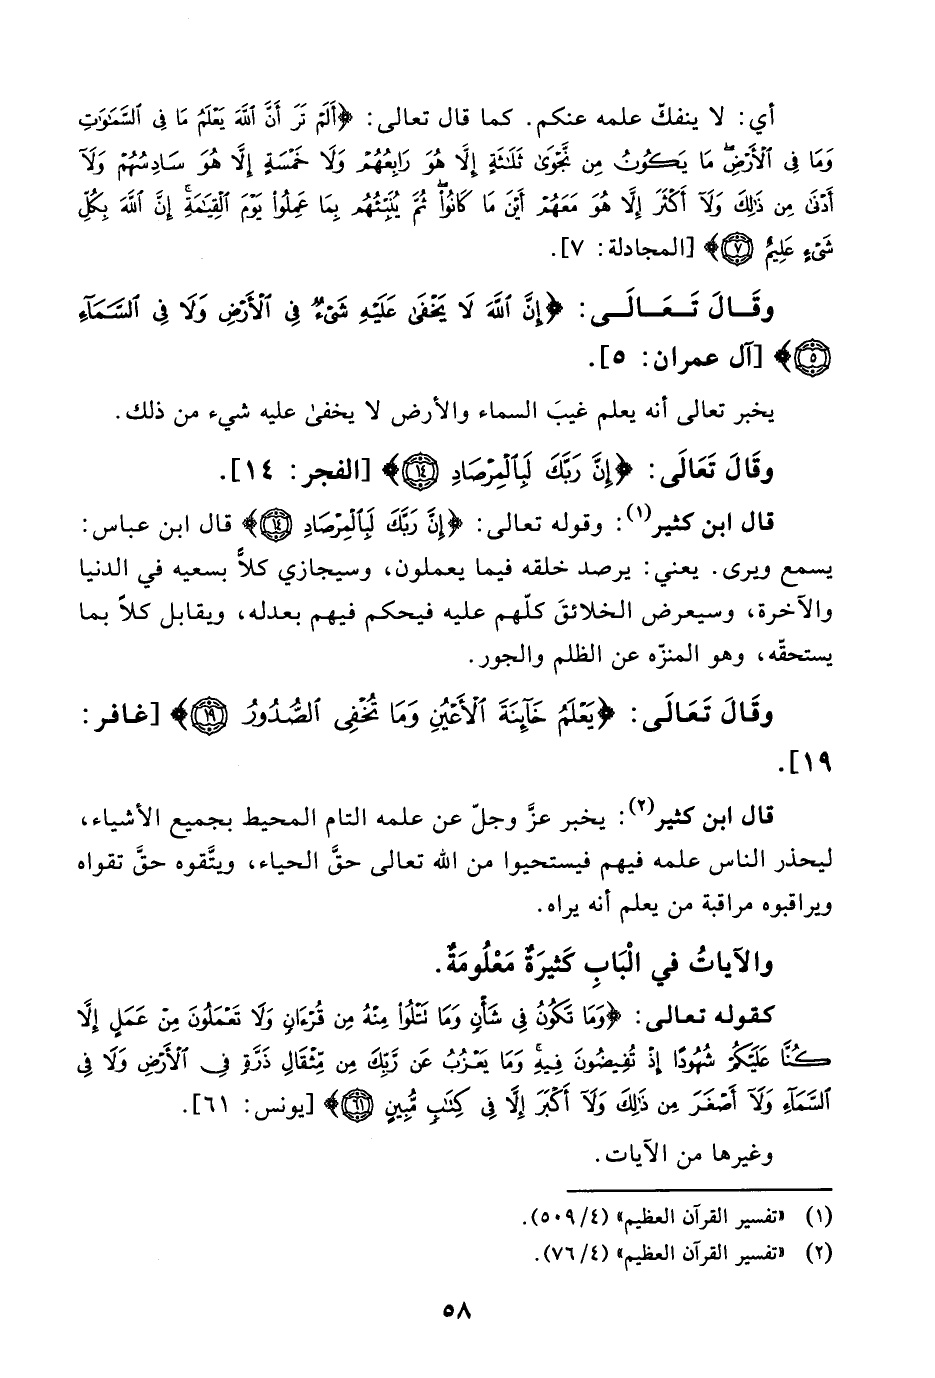 أي: لا ينفكّ علمه عنكم. كما قال تعالى: ﴿أَلَمْ تَرَ أَنَّ ٱللَّهَ يَعْلَمُ مَا فِى ٱلسَّمَٰوَٰتِ
وَمَا فِى ٱلْأَرْضِۖ مَا يَكُونُ مِن نَّجْوَىٰ ثَلَٰثَةٍ إِلَّا هُوَ رَابِعُهُمْ وَلَا خَمْسَةٍ إِلَّا هُوَ سَادِسُهُمْ وَلَآ
أَدْنَىٰ مِن ذَٰلِكَ وَلَآ أَكْثَرَ إِلَّا هُوَ مَعَهُمْ أَيْنَ مَا كَانُوا۟ۖ ثُمَّ يُنَبِّئُهُم بِمَا عَمِلُوا۟ يَوْمَ ٱلْقِيَٰمَةِۚ إِنَّ ٱللَّهَ بِكُلِّ
شَىْءٍ عَلِيمٌ ٧﴾ [المجادلة: ٧].
وقَـالَ تَـعَـالَـى: ﴿إِنَّ ٱللَّهَ لَا يَخْفَىٰ عَلَيْهِ شَىْءٌ فِى ٱلْأَرْضِ وَلَا فِى ٱلسَّمَآءِ
٥﴾ [آل عمران: ٥].
يخبر تعالى أنه يعلم غيبَ السماء والأرض لا يخفىٰ عليه شيء من ذلك.
وقَالَ تَعَالَى: ﴿إِنَّ رَبَّكَ لَبِٱلْمِرْصَادِ ١٤﴾ [الفجر: ١٤].
قال ابن كثير(١): وقوله تعالى: ﴿إِنَّ رَبَّكَ لَبِٱلْمِرْصَادِ ١٤﴾ قال ابن عباس:
يسمع ويرى. يعني: يرصد خلقه فيما يعملون، وسيجازي كلاًّ بسعيه في الدنيا
والآخرة، وسيعرض الخلائقَ كلّهم عليه فيحكم فيهم بعدله، ويقابل كلاً بما
يستحقّه، وهو المنزّه عن الظلم والجور.
وقَالَ تَعَالَى: ﴿يَعْلَمُ خَآئِنَةَ ٱلْأَعْيُنِ وَمَا تُخْفِى ٱلصُّدُورُ ١٩﴾ [غافر:
١٩].
قال ابن كثير(٢): يخبر عزَّ وجلّ عن علمه التام المحيط بجميع الأشياء،
ليحذر الناس علمه فيهم فيستحيوا من الله تعالى حقَّ الحياء، ويتَّقوه حقَّ تقواه
ويراقبوه مراقبة من يعلم أنه يراه.
والآياتُ في الْبَابِ كَثيرَةٌ مَعْلُومَةٌ.
كقوله تعالى: ﴿وَمَا تَكُونُ فِى شَأْنٍ وَمَا تَتْلُوا۟ مِنْهُ مِن قُرْءَانٍ وَلَا تَعْمَلُونَ مِنْ عَمَلٍ إِلَّا
كُنَّا عَلَيْكُمْ شُهُودًا إِذْ تُفِيضُونَ فِيهِۚ وَمَا يَعْزُبُ عَن رَّبِّكَ مِن مِّثْقَالِ ذَرَّةٍ فِى ٱلْأَرْضِ وَلَا فِى
ٱلسَّمَآءِ وَلَآ أَصْغَرَ مِن ذَٰلِكَ وَلَآ أَكْبَرَ إِلَّا فِى كِتَٰبٍ مُّبِينٍ ٦١﴾ [يونس: ٦١].
وغيرها من الآيات.
(١) «تفسير القرآن العظيم» (٤/ ٥٠٩).
(٢) «تفسير القرآن العظيم» (٤/ ٧٦).
٥٨